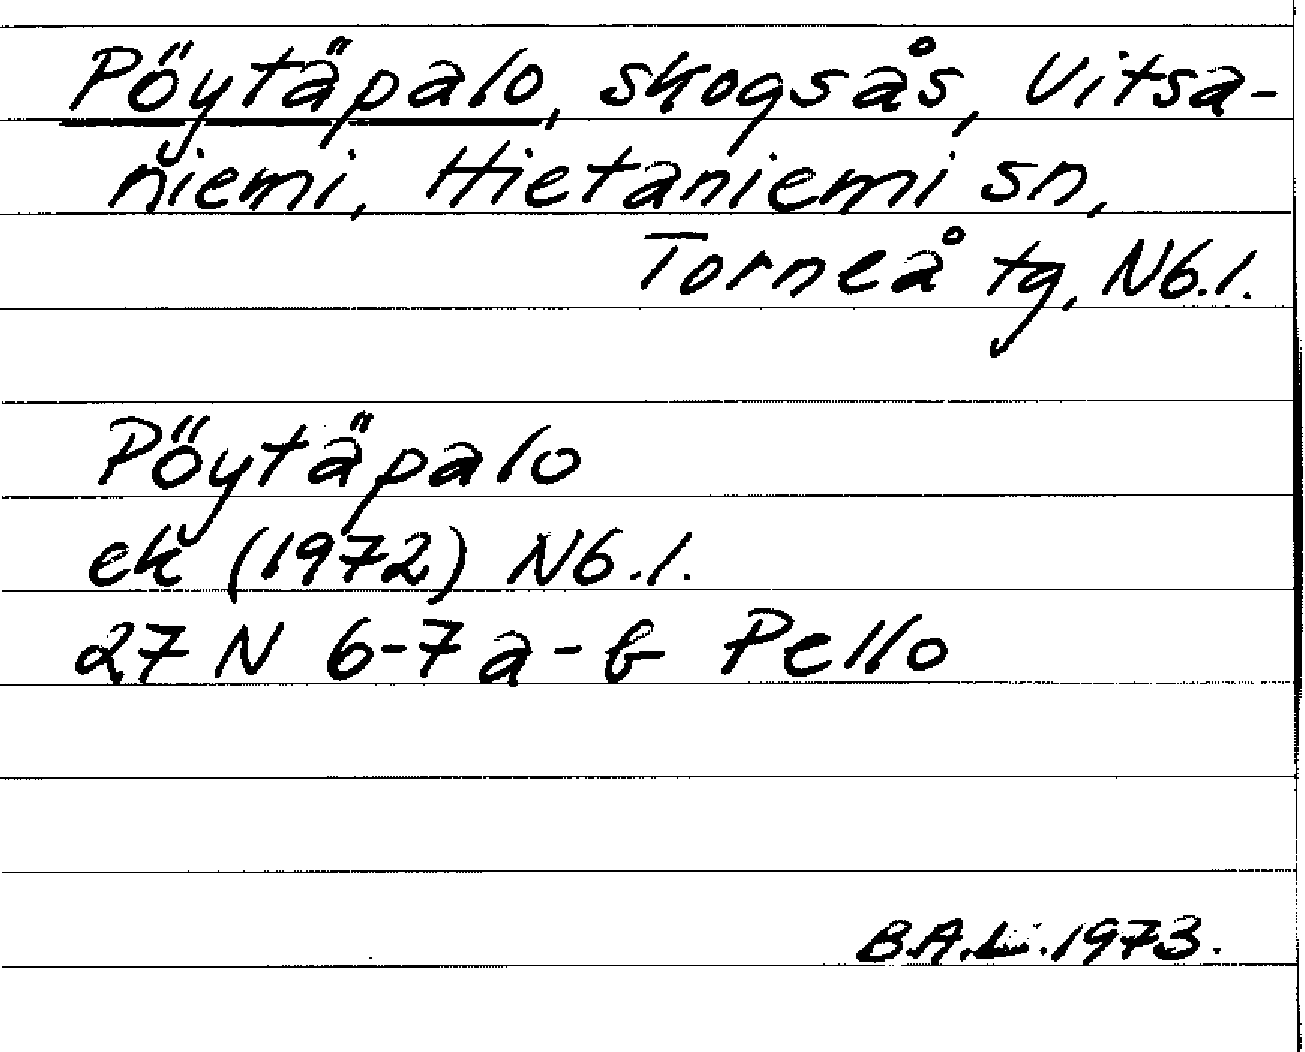 Pöytäpalo, skogsås, Vitsa-
niemi, Hietaniemi sn,
Torneå tg, Nb.l.
Pöytäpalo
ek (1972) Nb.l.
27 N 6-7 a-b Pello
B.A.L. 1973.